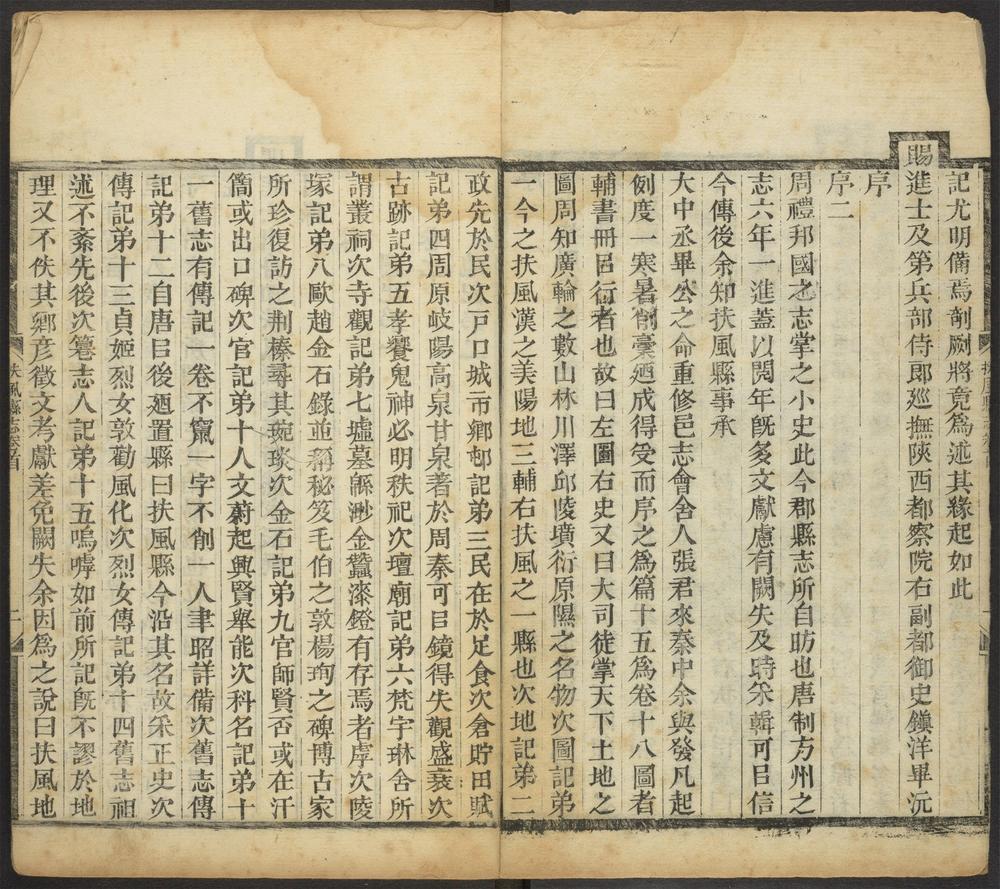 記尤明備焉剞劂將竟爲述其緣起如此
賜
進士及第兵部侍郎廵撫陝西都察院右副都御史鎭洋畢沅
序
序二
周禮邦國之志掌之小史此今郡縣志所自昉也唐制方州之
志六年一進蓋以閱年旣多文獻慮有闕失及時采輯可㠯信
今傳後余知扶風縣事承
大中丞畢公之命重修邑志會舍人張君來秦中余與發凡起
例度一寒暑削稾廼成得受而序之爲篇十五爲卷十八圖者
輔書冊㠯行者也故曰左圖右史又曰大司徒掌天下土地之
圖周知廣輪之數山林川澤邱陵墳衍原隰之名物次圖記弟
一今之扶風漢之美陽地三輔右扶風之一縣也次地記弟二
政先於民次戸口城市鄉邨記弟三民在於足食次倉貯田賦
記弟四周原岐陽高泉甘泉著於周秦可㠯鏡得失觀盛衰次
古跡記弟五孝饗鬼神必明秩祀次壇廟記弟六梵宇琳舍所
謂叢祠次寺觀記弟七墟墓緜渺金蠶漆鐙有存焉者虖次陵
塚記弟八歐趙金石錄並稱秘笈毛伯之敦楊珣之碑博古家
所珍復訪之荆榛㝷其琬琰次金石記弟九官師賢否或在汗
簡或出口碑次官記弟十人文蔚起興賢舉能次科名記弟十
一舊志有傳記一卷不竄一字不削一人聿昭詳備次舊志傳
記弟十二自唐㠯後廼置縣曰扶風縣今沿其名故采正史次
傳記弟十三貞姬烈女敦勸風化次烈女傳記弟十四舊志祖
述不紊先後次篹志人記弟十五嗚嘑如前所記旣不謬於地
理又不佚其鄉彥徵文考獻差免闕失余因爲之說曰扶風地
扶風縣志卷首